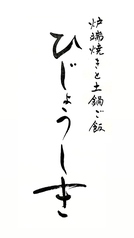 炉端焼きと土鍋ご飯
ひじょうしき